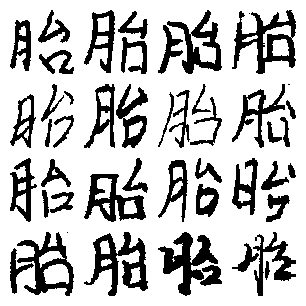 胎胎胎胎
胎胎胎胎
胎胎胎胎
胎胎胎胎